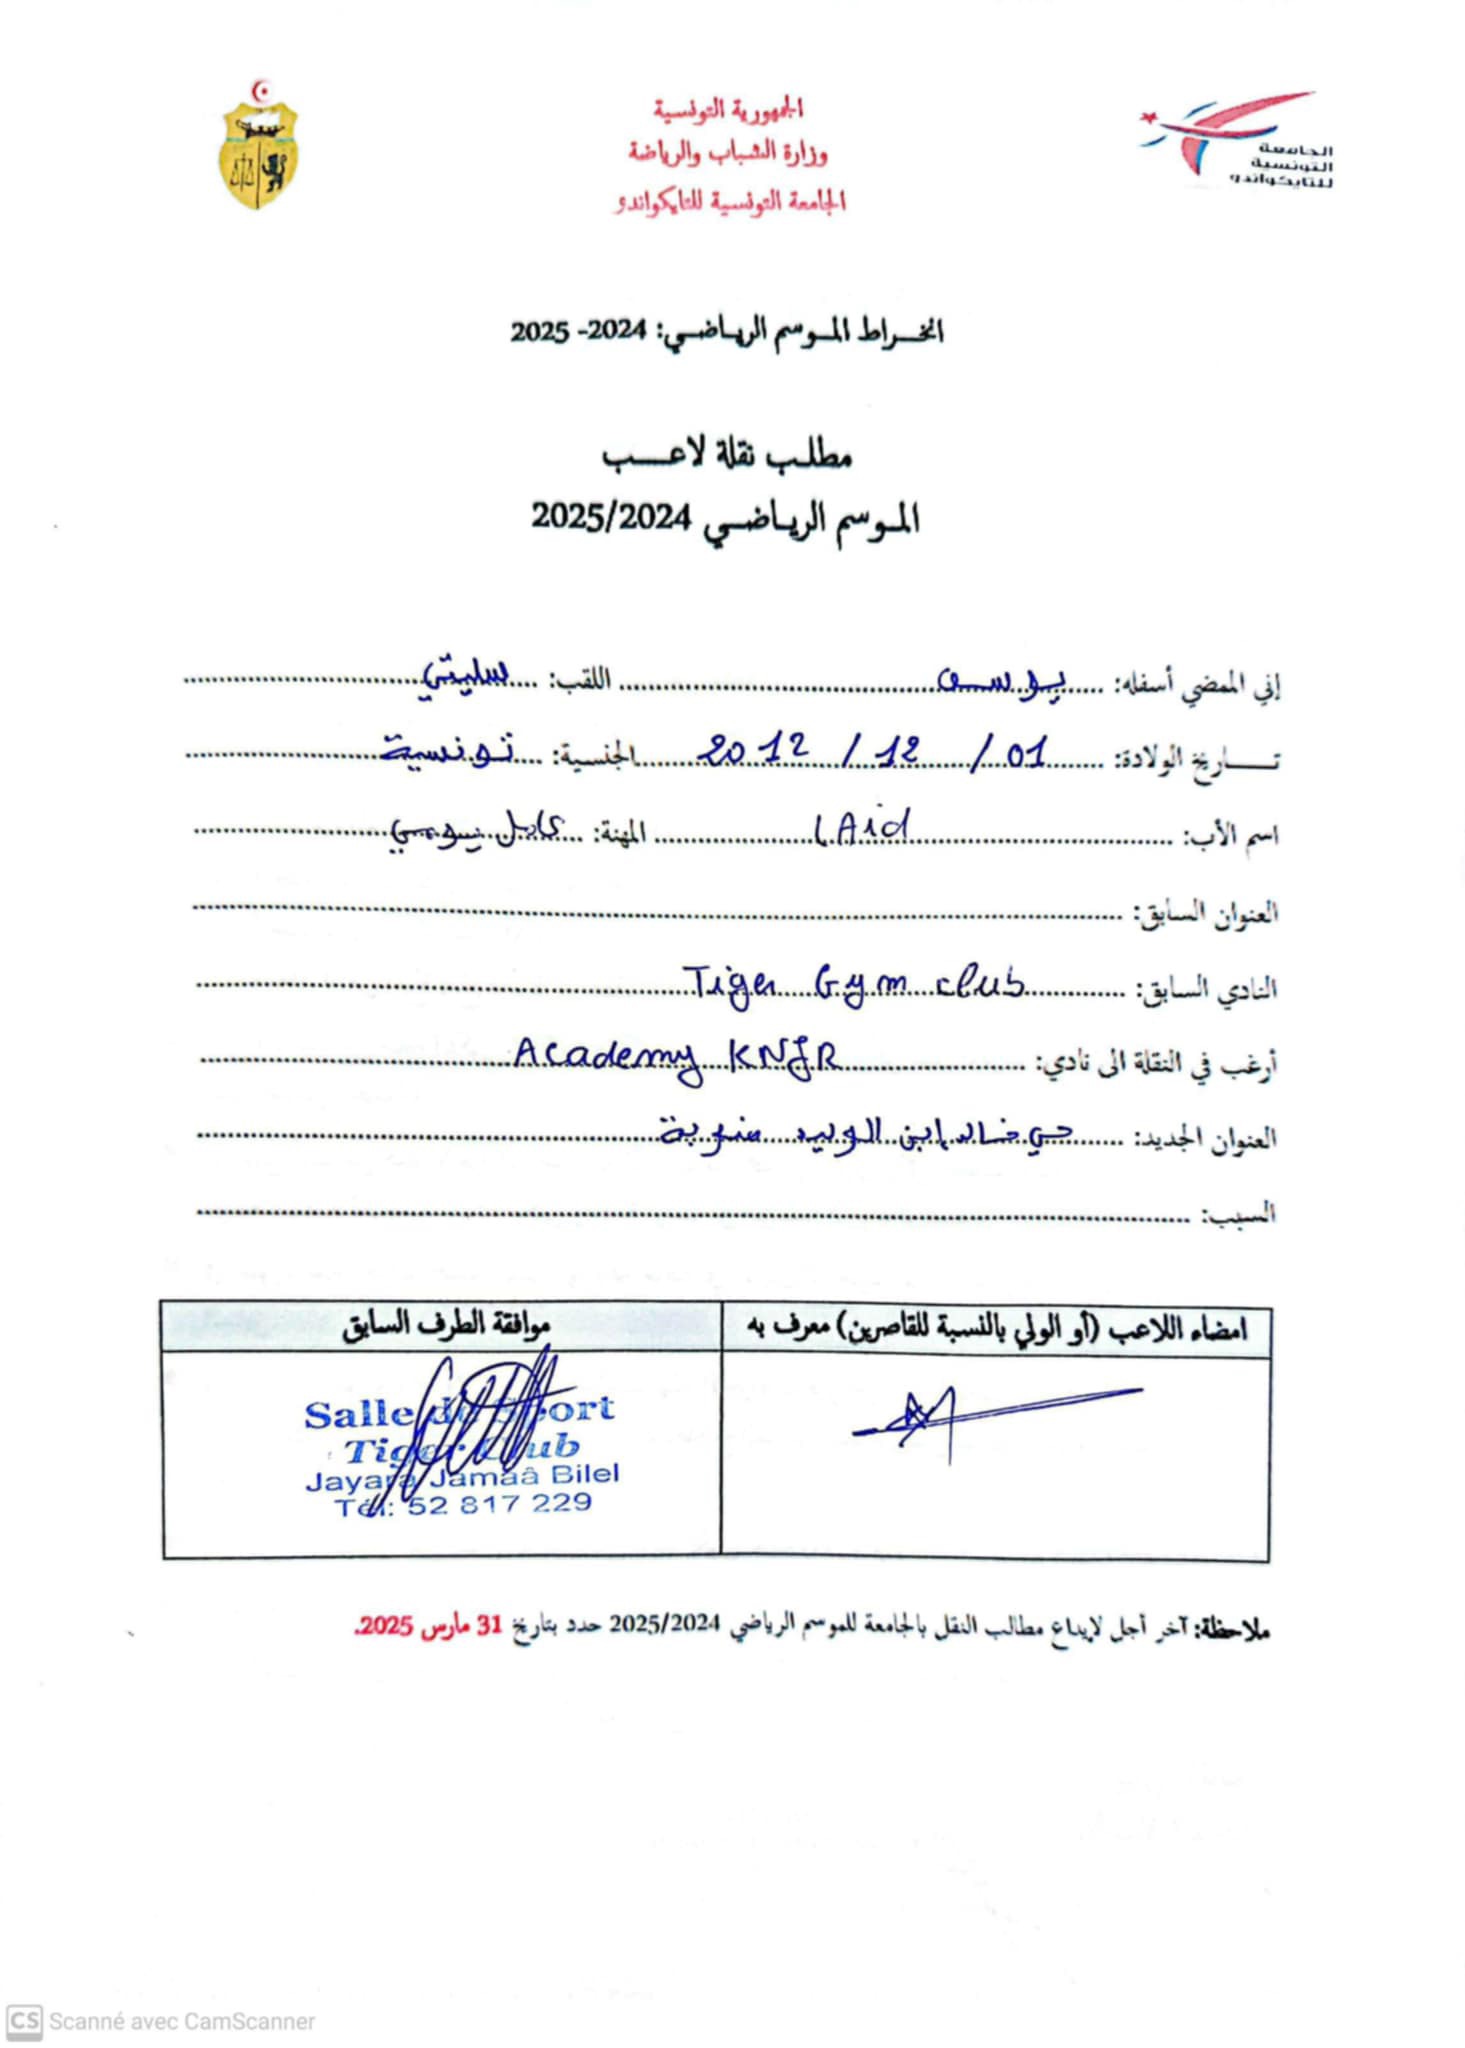 الجمهورية التونسية
وزارة الشباب والرياضة
الجامعة التونسية للتايكواندو
الجامعة
التونسية
للتايكواندو
انخراط الموسم الرياضي: 2024- 2025
مطلب نقلة لاعب
الموسم الرياضي 2025/2024
إني الممضي أسفله: يوسف اللقب: سليتي
تاريخ الولادة: 01 / 12 / 2012 الجنسية: تونسية
اسم الأب: LAid المهنة: عامل يومي
العنوان السابق:
النادي السابق: Tiger Gym club
أرغب في النقلة الى نادي: Academy KNJR
العنوان الجديد: حي خالد ابن الوليد منوبة
السبب:
امضاء اللاعب (أو الولي بالنسبة للقاصرين) معرف به
موافقة الطرف السابق
Salle de Sport
Tiger Club
Jayara Jamaâ Bilel
Tél: 52 817 229
ملاحظة: آخر أجل لإيداع مطالب النقل بالجامعة للموسم الرياضي 2025/2024 حدد بتاريخ 31 مارس 2025.
CS Scanné avec CamScanner